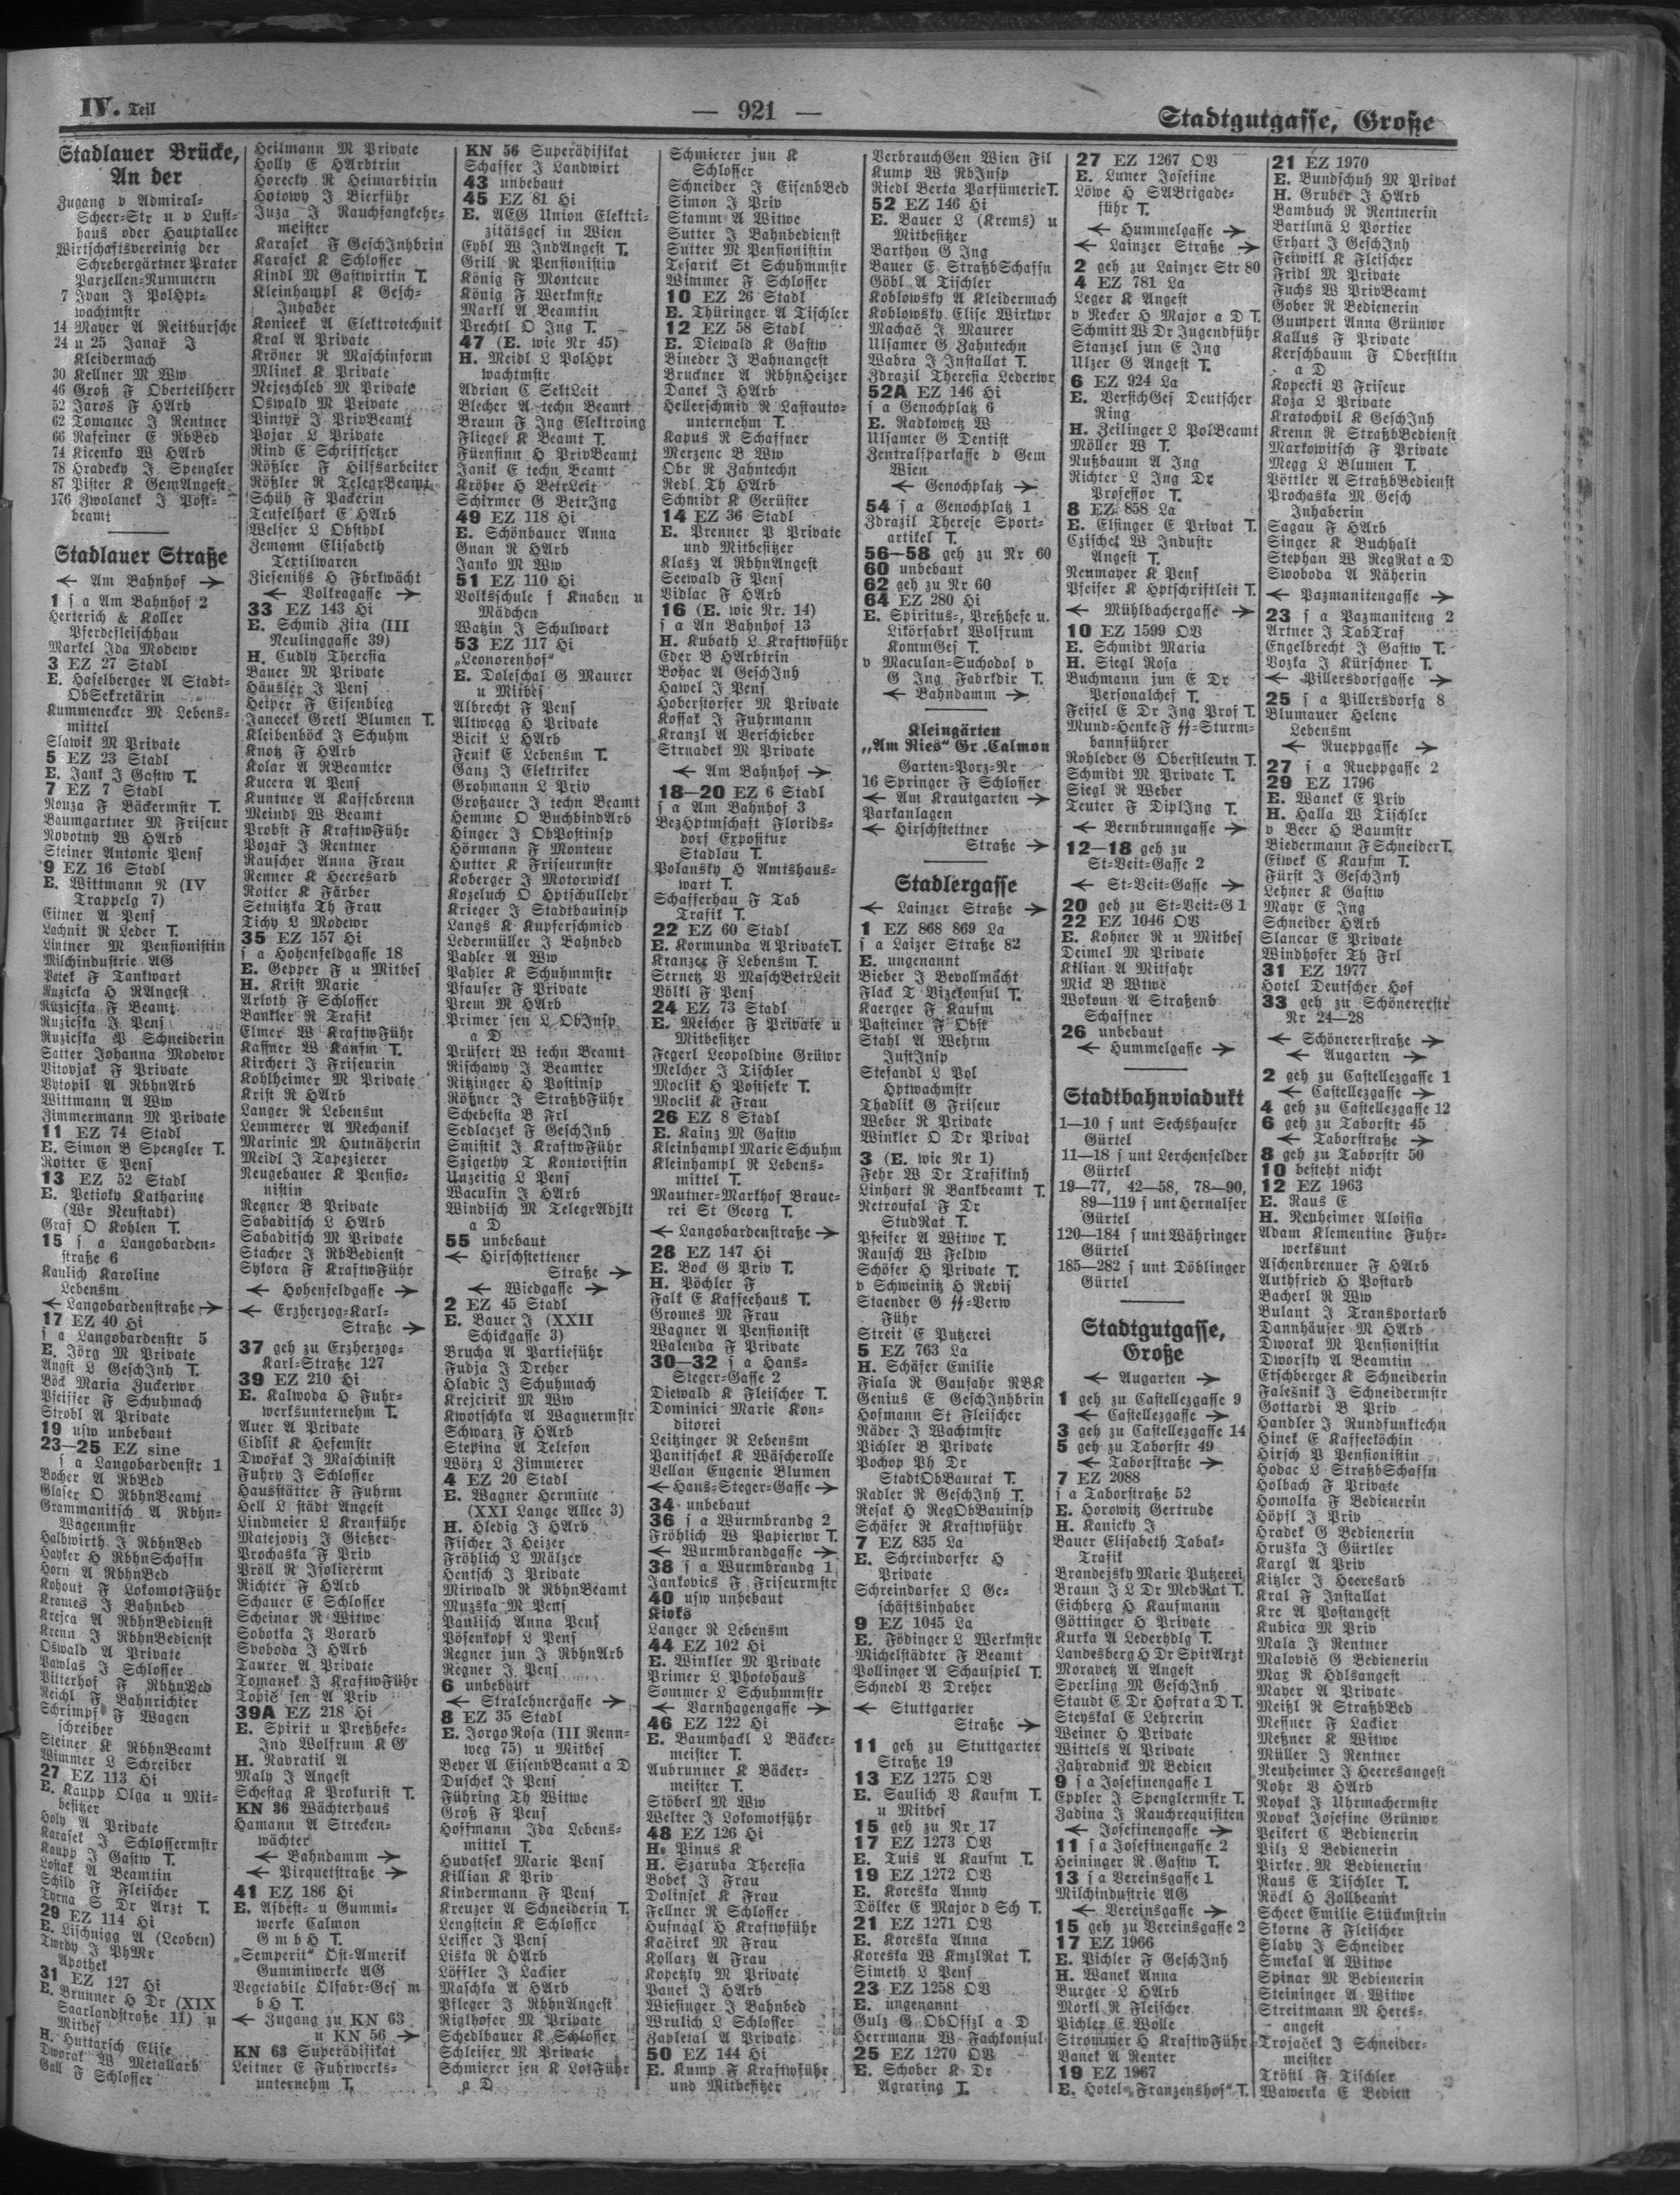 IV. Teil
— 921 —
Stadtgutgasse, Große
Stadlauer Brücke,
An der
Zugang v Admiral-
Scheer-Str u v Lust-
haus oder Hauptallee
Wirtschaftsvereinig der
Schrebergärtner Prater
Parzellen-Nummern
7 Ivan J PolHpt-
wachtmstr
14 Mayer A Reitbursche
24 u 25 Janař J
Kleidermach
30 Kellner M Ww
46 Groß F Oberteilherr
52 Jaros F HArb
62 Tomanec J Rentner
66 Rafeiner E RbBed
74 Kicenko W HArb
78 Hradecky J Spengler
87 Pister K GemAngest
176 Zwolanek J Post-
beamt
Stadlauer Straße
← Am Bahnhof →
1 s a Am Bahnhof 2
Herterich & Koller
Pferdefleischhau
Markel Ida Modewr
3 EZ 27 Stadl
E. Haselberger A Stadt-
ObSekretärin
Kummenecker M Lebens-
mittel
Slawik M Private
5 EZ 23 Stadl
E. Jank J Gastw T.
7 EZ 7 Stadl
Rouza F Bäckermstr T.
Baumgartner M Friseur
Novotny W HArb
Steiner Antonie Pens
9 EZ 16 Stadl
E. Wittmann R (IV
Trappelg 7)
Eitner A Pens
Lachnit R Leder T.
Lintner M Pensionistin
Milchindustrie AG
Patek F Tankwart
Ruzicka H RAngest
Ruzieska F Beamt
Ruzieska J Pens
Ruzieska P Schneiderin
Satter Johanna Modewr
Vitovjak F Private
Vytopil A RbhnArb
Wittmann A Ww
Zimmermann M Private
11 EZ 74 Stadl
E. Simon B Spengler T.
Rotter E Pens
13 EZ 52 Stadl
E. Petioky Katharine
(Wr Neustadt)
Graf O Kohlen T.
15 s a Langobarden-
straße 6
Kaulich Karoline
Lebensm
← Langobardenstraße →
17 EZ 40 Hi
s a Langobardenstr 5
E. Jörg M Private
Angst L GeschInh T.
Böck Maria Zuckerwr
Pfeisser F Schuhmach
Strobl A Private
19 usw unbebaut
23—25 EZ sine
s a Langobardenstr 1
Bocher A RbBed
Glaser O RbhnBeamt
Grammanitsch A Rbhn-
Wagenmstr
Halbwirth J RbhnBed
Hayker H RbhnSchaffn
Horn A RbhnBed
Kohout F LokomotFühr
Krames J Bahnbed
Krejca A RbhnBedienst
Krenn J RbhnBedienst
Oswald A Private
Pawlas J Schlosser
Pitterhof F RbhnBed
Reichl F Bahnrichter
Schrimpf F Wagen
schreiber
Steiner K RbhnBeamt
Wimmer L Schreiber
27 EZ 113 Hi
E. Kaupp Olga u Mit-
besitzer
Holy A Private
Karasek J Schlossermstr
Kaupp J Gastw T.
Lostak A Beamtin
Schild F Fleischer
Tyrna S Dr Arzt T.
29 EZ 114 Hi
E. Lischnigg A (Leoben)
Twrdy J PhMr
Apothek
31 EZ 127 Hi
E. Brunner H Dr (XIX
Saarlandstraße 11) u
Mitbes
H. Huttarsch Elise
Dworak W Metallarb
Gall F Schlosser
Heilmann M Private
Holly E HArbtrin
Horecky R Heimarbtrin
Hotowy J Bierführ
Juza J Rauchfangkehr-
meister
Karasek F GeschInhbrin
Karasek K Schlosser
Kindl M Gastwirtin T.
Kleinhampl K Gesch-
Inhaber
Konicek A Elektrotechnik
Kral A Private
Kröner R Maschinform
Mlinek K Private
Nejezchleb M Private
Oswald M Private
Pintyř J PrivBeamt
Pojar L Private
Rind E Schriftsetzer
Rößler F Hilfsarbeiter
Rößler R TelegrBeamt
Schütz F Packerin
Teufelhart E HArb
Welser L Obsthdl
Zemann Elisabeth
Textilwaren
Zieseniß H Fbrkwächt
← Volkragasse →
33 EZ 143 Hi
E. Schmid Zita (III
Neulinggasse 39)
H. Cudly Theresia
Bauer M Private
Häusler J Pens
Heiper F Eisenbieg
Janecek Gretl Blumen T.
Kleibenböck J Schuhm
Knotz F HArb
Kolar A RBeamter
Kucera A Pens
Kuntner A Kaffebrenn
Meindl W Beamt
Probst F KraftwFühr
Pozař J Rentner
Rauscher Anna Frau
Renner K Heeresarb
Rotter K Färber
Setnitzka Th Frau
Tichy L Modewr
35 EZ 157 Hi
s a Hohenfeldgasse 18
E. Gepper F u Mitbes
H. Krist Marie
Arloth F Schlosser
Bankler R Trafik
Elmer W KraftwFühr
Kaffner W Kaufm T.
Kirchert J Friseurin
Kohlheimer M Private
Krist R HArb
Langer R Lebensm
Lemmerer A Mechanik
Marinic M Hutnäherin
Meidl J Tapezierer
Neugebauer K Pensio-
nistin
Regner B Private
Sabaditsch L HArb
Sabaditsch M Private
Stacher J RbBedienst
Sykora F KraftwFühr
← Hohenfeldgasse →
← Erzherzog-Karl-
Straße →
37 geh zu Erzherzog-
Karl-Straße 127
39 EZ 210 Hi
E. Kalwoda H Fuhr-
werksunternehm T.
Auer A Private
Cidlik K Hefemstr
Dwořak J Maschinist
Fuhry J Schlosser
Hausstätter F Fuhrm
Hell L städt Angest
Lindmeier L Kranführ
Matejoviz J Gießer
Prochaska F Priv
Pröll R Isolierern
Richter F HArb
Schauer E Schlosser
Scheinar R Witwe
Sobotka J Vorarb
Svoboda J HArb
Taurer A Private
Tomanek J KraftwFühr
Topič sen A Priv
39A EZ 218 Hi
E. Spirit u Preßhefe-
Ind Wolfrum K G
H. Navratil A
Maly J Angest
Schestag K Prokurist T.
KN 36 Wächterhaus
Hamann A Strecken-
wächter
← Bahndamm →
← Pirquetstraße →
41 EZ 186 Hi
E. Asbest- u Gummi-
werke Calmon
G m b H T.
„Semperit“ Öst-Amerik
Gummiwerke AG
Vegetabile Ölfabr-Ges m
b H T.
← Zugang zu KN 63
u KN 56 →
KN 63 Superädifikat
Leitner E Fuhrwerks-
unternehm T.
KN 56 Superädifikat
Schaffer J Landwirt
43 unbebaut
45 EZ 81 Hi
E. AEG Union Elektri-
zitätsges in Wien
Eybl W IndAngest T.
Grill R Pensionistin
König F Monteur
König F Werkmstr
Markl A Beamtin
Prechtl O Ing T.
47 (E. wie Nr 45)
H. Meidl L PolHpt
wachtmstr
Adrian C SektLeit
Blecher A techn Beamt
Braun F Ing Elektroing
Fliegel K Beamt T.
Fürnsinn H PrivBeamt
Janik E techn Beamt
Kröher H BetrLeit
Schirmer G BetrIng
49 EZ 118 Hi
E. Schönbauer Anna
Gnan R HArb
Janko M Ww
51 EZ 110 Hi
Volksschule f Knaben u
Mädchen
Watzin J Schulwart
53 EZ 117 Hi
„Leonorenhof“
E. Doleschal G Maurer
u Mitbes
Albrecht F Pens
Altwegg H Private
Bicik L HArb
Fenik E Lebensm T.
Ganz J Elektriker
Grohmann L Priv
Großauer J techn Beamt
Hemme O BuchbindArb
Hinger J ObPostinsp
Hörmann F Monteur
Hutter K Friseurmstr
Koberger J Motorwickl
Kozeluch O Hptschullehr
Krieger J Stadtbauinsp
Langs K Kupferschmied
Ledermüller J Bahnbed
Pahler A Ww
Pahler K Schuhmmstr
Pfauser F Private
Prem M HArb
Primer sen L ObInsp
a D
Prüfert W techn Beamt
Rischawy J Beamter
Ritzinger H Postinsp
Rößner J StraßbFühr
Schebesta B Frl
Sedlaczek F GeschInh
Smistik J KraftwFühr
Szigethy T Kontoristin
Unzeitig L Pens
Waculin J HArb
Windisch M TelegrAdjkt
a D
55 unbebaut
← Hirschstettener
Straße →
← Wiedgasse →
2 EZ 45 Stadl
E. Bauer J (XXII
Schickgasse 3)
Brucha A Partieführ
Fudja J Dreher
Hladic J Schuhmach
Krejcirik M Ww
Kwotschka A Wagnermstr
Schwarz F HArb
Stepina A Telefon
Wörz L Zimmerer
4 EZ 20 Stadl
E. Wagner Hermine
(XXI Lange Allee 3)
H. Hledig J HArb
Fischer J Heizer
Fröhlich L Mälzer
Hentsch J Private
Mirwald R RbhnBeamt
Muzska M Pens
Paulisch Anna Pens
Pösenkopf L Pens
Regner jun J RbhnArb
Regner J Pens
6 unbebaut
← Stralehnergasse →
8 EZ 35 Stadl
E. Jorgo Rosa (III Renn-
weg 75) u Mitbes
Beyer A EisenbBeamt a D
Duschek J Pens
Führing Th Witwe
Groß F Pens
Hoffmann Ida Lebens-
mittel T.
Huvatsek Marie Pens
Killian K Priv
Kindermann F Pens
Kreuzer A Schneiderin T.
Lengstein K Schlosser
Leisser J Pens
Liska R HArb
Löffler J Lackier
Maschka A HArb
Pfleger J RbhnAngest
Riglhofer M Private
Schedlbauer K Schlosser
Schleifer M Private
Schmierer sen K LokFühr
a D
Schmierer jun K
Schlosser
Schneider J EisenbBed
Simon J Priv
Stamm A Witwe
Sutter J Bahnbedienst
Sutter M Pensionistin
Tesarik St Schuhmmstr
Wimmer F Schlosser
10 EZ 26 Stadl
E. Thüringer A Tischler
12 EZ 58 Stadl
E. Diewald K Gastw
Bineder J Bahnangest
Bruckner A RbhnHeizer
Danek J HArb
Hellerschmid R Lastauto-
unternehm T.
Kapus R Schaffner
Merzenc B Ww
Obr R Zahntechn
Redl Th HArb
Schmidt K Gerüster
14 EZ 36 Stadl
E. Prenner P Private
und Mitbesitzer
Klasz A RbhnAngest
Seewald F Pens
Vidlac F HArb
16 (E. wie Nr. 14)
s a An Bahnhof 13
H. Kubath L Kraftwführ
Eder B HArbtrin
Bohac A GeschInh
Hawel J Pens
Hoberstorfer M Private
Kossak J Fuhrmann
Kranzl A Verschieber
Strnadek M Private
← Am Bahnhof →
18—20 EZ 6 Stadl
s a Am Bahnhof 3
BezHptmschaft Florids-
dorf Expositur
Stadlau T.
Polansky H Amtshaus-
wart T.
Schafferhau F Tab
Trafik T.
22 EZ 60 Stadl
E. Kormunda A Private T.
Kranzer F Lebensm T.
Sernetz V MaschBetrLeit
Völkl F Pens
24 EZ 73 Stadl
E. Melcher F Private u
Mitbesitzer
Fegerl Leopoldine Grüwr
Melcher J Tischler
Moclik H Postsekr T.
Moclik K Frau
26 EZ 8 Stadl
E. Kainz M Gastw
Kleinhampl Marie Schuhm
Kleinhampl R Lebens-
mittel T.
Mautner-Markhof Braue-
rei St Georg T.
← Langobardenstraße →
28 EZ 147 Hi
E. Bock G Priv T.
H. Pöchler F
Falk E Kaffeehaus T.
Gromes M Frau
Wagner A Pensionist
Walenda F Private
30—32 s a Hans-
Steger-Gasse 2
Diewald K Fleischer T.
Dominici Marie Kon-
ditorei
Leitzinger R Lebensm
Panitschek K Wäscherolle
Vellan Eugenie Blumen
← Hans-Steger-Gasse →
34 unbebaut
36 s a Wurmbrandg 2
Fröhlich W Papierwr T.
← Wurmbrandgasse →
38 s a Wurmbrandg 1
Jankovics F Friseurmstr
40 usw unbebaut
Kioks
Langer R Lebensm
44 EZ 102 Hi
E. Winkler M Private
Primer L Photohaus
Sommer L Schuhmmstr
← Varnhagengasse →
46 EZ 122 Hi
E. Baumhackl L Bäcker-
meister T.
Aubrunner K Bäcker-
meister T.
Stöberl M Ww
Welter J Lokomotführ
48 EZ 126 Hi
H. Pinus K
H. Szaruba Theresia
Bobek J Frau
Dolinsek K Frau
Fellner R Schlosser
Hufnagl H Kraftwführ
Kačirek M Frau
Kollarz A Frau
Kopetzky M Private
Panek J HArb
Wiesinger J Bahnbed
Wrulich L Schlosser
Zapletal A Private
50 EZ 144 Hi
E. Kump F Kraftwführ
und Mitbesitzer
VerbrauchGen Wien Fil
Kump W RbInsp
Riedl Berta Parfümerie T.
52 EZ 146 Hi
E. Bauer L (Krems) u
Mitbesitzer
Barthon G Ing
Bauer E StraßbSchaffn
Göbl A Tischler
Koblowsky A Kleidermach
Koblowsky Elise Wirkwr
Machač J Maurer
Ulsamer G Zahntechn
Wabra J Installat T.
Zdrazil Theresia Lederwr
52A EZ 146 Hi
s a Genochplatz 6
E. Radkowetz W
Ulsamer G Dentist
Zentralsparkasse d Gem
Wien
← Genochplatz →
54 s a Genochplatz 1
Zdrazil Therese Sport-
artikel T.
56—58 geh zu Nr 60
60 unbebaut
62 geh zu Nr 60
64 EZ 280 Hi
E. Spiritus-, Preßhefe u.
Likörfabrk Wolfrum
KommGes T.
v Maculan-Suchodol v
G Ing Fabrkdir T.
← Bahndamm →
Kleingärten
„Am Ries“ Gr. Calmon
Garten-Parz-Nr
16 Springer F Schlosser
← Am Krautgarten →
Parkanlagen
← Hirschstettner
Straße →
Stadlergasse
← Lainzer Straße →
1 EZ 868 869 La
s a Laizer Straße 82
E. ungenannt
Bieber J Bevollmächt
Flack T Vizekonsul T.
Kaerger F Kaufm
Pasteiner F Obst
Stahl A Wehrm
JustInsp
Stefandl L Pol
Hptwachmstr
Thadlik G Friseur
Weber R Private
Winkler O Dr Privat
3 (E. wie Nr 1)
Fehr W Dr Trafikinh
Linhart R Bankbeamt T.
Netrousal F Dr
StudRat T.
Pfeifer A Witwe T.
Rausch W Feldw
Schöfer H Private T.
v Schweinitz H Revis
Staender G SS-Verw
Führ
Streit E Putzerei
5 EZ 763 La
H. Schäfer Emilie
Fiala R Gaufahr RBK
Genius E GeschInhbrin
Hofmann St Fleischer
Näder J Wachtmstr
Pichler B Private
Pochop Ph Dr
StadtObBaurat T.
Radler R GeschInh T.
Resak H RegObBauinsp
Schäfer R Kraftwführ
7 EZ 835 La
E. Schreindorfer H
Private
Schreindorfer L Ge-
schäftsinhaber
9 EZ 1045 La
E. Födinger L Werkmstr
Michelstädter F Beamt
Pollinger A Schauspiel T.
Schnedl V Dreher
← Stuttgarter
Straße →
11 geh zu Stuttgarter
Straße 19
13 EZ 1275 OV
E. Saulich V Kaufm T.
u Mitbes
15 geh zu Nr 17
17 EZ 1273 OV
E. Tuis A Kaufm T.
19 EZ 1272 OV
E. Koreska Anny
Dölker E Major d Sch T.
21 EZ 1271 OV
E. Koreska Anna
Koreska W KmzlRat T.
Simeth L Pens
23 EZ 1258 OV
E. ungenannt
Gulz G ObOffzl a D
Herrmann W Fachkonsul
25 EZ 1270 OV
E. Schober K Dr
Agraring T.
27 EZ 1267 OV
E. Luner Josefine
Löwe H SABrigade-
führ T.
← Hummelgasse →
← Lainzer Straße →
2 geh zu Lainzer Str 80
4 EZ 781 La
Leger K Angest
v Recker H Major a D T.
Schmitt W Dr Jugendführ
Stanzel jun E Ing
Ulzer G Angest T.
6 EZ 924 La
E. VersichGes Deutscher
Ring
H. Zeilinger L PolBeamt
Möller W T.
Nußbaum A Ing
Richter L Ing Dr
Professor T.
8 EZ 858 La
E. Elfinger E Privat T.
Czischek W Industr
Angest T.
Neumayer K Pens
Pfeifer K Hptschriftleit T.
← Mühlbachergasse →
10 EZ 1599 OV
E. Schmidt Maria
H. Siegl Rosa
Buchmann jun E Dr
Personalchef T.
Feifel E Dr Ing Prof T.
Mund-Henke F SS-Sturm-
bannführer
Rohleder G Oberstleutn T.
Schmidt M Private T.
Siegl R Weber
Teuter F DiplIng T.
← Bernbrunngasse →
12—18 geh zu
St-Veit-Gasse 2
← St-Veit-Gasse →
20 geh zu St-Veit-G 1
22 EZ 1046 OV
E. Kohner R u Mitbes
Deimel M Private
Kilian A Mitfahr
Mick B Wtwe
Wokoun A Straßenb
Schaffner
26 unbebaut
← Hummelgasse →
Stadtbahnviadukt
1—10 s unt Sechshauser
Gürtel
11—18 s unt Lerchenfelder
Gürtel
19—77, 42—58, 78—90,
89—119 s unt Hernalser
Gürtel
120—184 s unt Währinger
Gürtel
185—282 s unt Döblinger
Gürtel
Stadtgutgasse,
Große
← Augarten →
1 geh zu Castellezgasse 9
← Castellezgasse →
3 geh zu Castellezgasse 14
5 geh zu Taborstr 49
← Taborstraße →
7 EZ 2088
s a Taborstraße 52
E. Horowitz Gertrude
H. Kanicky J
Bauer Elisabeth Tabak-
Trafik
Brandejsky Marie Putzerei
Braun J L Dr MedRat T.
Eichberg H Kaufmann
Göttinger H Private
Kurka A Lederhdlg T.
Landesberg H Dr SpitArzt
Moravetz A Angest
Sperling M GeschInh
Staudt E Dr Hofrat a D T.
Steyskal E Lehrerin
Weiner H Private
Wittels A Private
Zahradnick M Bedien
9 s a Josefinengasse 1
Eppler J Spenglermstr T.
Zadina J Rauchrequisiten
← Josefinengasse →
11 s a Josefinengasse 2
Heininger R Gastw T.
13 s a Vereinsgasse 1
Milchindustrie AG
← Vereinsgasse →
15 geh zu Vereinsgasse 2
17 EZ 1966
E. Pichler F GeschInh
H. Wanek Anna
Burger L HArb
Morkl R Fleischer
Pichler E Wolle
Strommer H KraftwFühr
Vanek A Renter
19 EZ 1967
E. Hotel „Franzenshof“ T.
21 EZ 1970
E. Bundschuh M Privat
H. Gruber J HArb
Bambuch R Rentnerin
Bartlmä L Portier
Erhart J GeschInh
Feiwikl K Fleischer
Fridl M Private
Fuchs W PrivBeamt
Gober R Bedienerin
Gumpert Anna Grünwr
Kallus F Private
Kerschbaum F Oberstltn
a D
Kopecki V Friseur
Koza L Private
Kratochvil K GeschInh
Krenn R StraßbBedienst
Markowitsch F Private
Megg L Blumen T.
Pöttler A StraßbBedienst
Prochaska M Gesch
Inhaberin
Sagau F HArb
Singer K Buchhalt
Stephan W RegRat a D
Swoboda A Näherin
← Pazmanitengasse →
23 s a Pazmaniteng 2
Artner J TabTraf
Engelbrecht J Gastw T.
Vozka J Kürschner T.
← Pillersdorfgasse →
25 s a Pillersdorfg 8
Blumauer Helene
Lebensm
← Rueppgasse →
27 s a Rueppgasse 2
29 EZ 1796
E. Wanek E Priv
H. Halla W Tischler
v Beer H Baumstr
Biedermann F Schneider T.
Eiwek C Kaufm T.
Fürst J GeschInh
Lehner K Gastw
Mayr E Ing
Schneider HArb
Slancar E Private
Windhofer Th Frl
31 EZ 1977
Hotel Deutscher Hof
33 geh zu Schönererstr
Nr 24—28
← Schönererstraße →
← Augarten →
2 geh zu Castellezgasse 1
← Castellezgasse →
4 geh zu Castellezgasse 12
6 geh zu Taborstr 45
← Taborstraße →
8 geh zu Taborstr 50
10 besteht nicht
12 EZ 1963
E. Raus E
H. Neuheimer Aloisia
Adam Klementine Fuhr-
werksunt
Aschenbrenner F HArb
Authfried H Postarb
Bacherl R Ww
Bulant J Transportarb
Dannhäuser M HArb
Dworak M Pensionistin
Dworsky A Beamtin
Etschberger K Schneiderin
Falesnik J Schneidermstr
Gottardi B Priv
Handler J Rundfunktechn
Hinek E Kaffeeköchin
Hirsch P Pensionistin
Hodac L StraßbSchaffn
Holbach F Private
Homolka F Bedienerin
Höpfl J Priv
Hradek G Bedienerin
Hruska J Gürtler
Kargl A Priv
Kitzler J Heeresarb
Kral F Installat
Kre A Postangest
Kubica M Priv
Mala J Rentner
Malovič G Bedienerin
Max R Hdlsangest
Mayer A Private
Meißl R StraßbBed
Messner F Lackier
Meßner K Witwe
Müller J Rentner
Neuheimer J Heeresangest
Nohr V HArb
Novak J Uhrmachermstr
Novak Josefine Grünwr
Peikert C Bedienerin
Pilz L Bedienerin
Pirker M Bedienerin
Raus E Tischler T.
Röckl H Zollbeamt
Scheck Emilie Stückmstrin
Skorne F Fleischer
Slaby J Schneider
Smekal A Witwe
Spinar M Bedienerin
Steininger A Witwe
Streitmann M Heres-
angest
Trojaček J Schneider-
meister
Tröstl F Tischler
Wawerka E Bedien